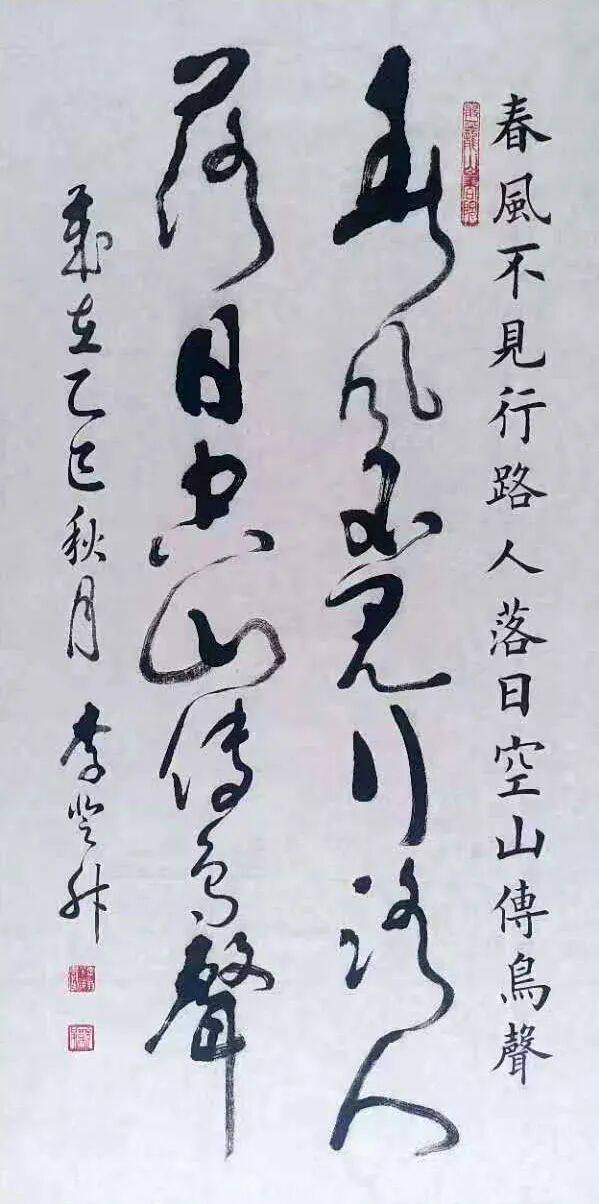 春風不見行路人落日空山傳鳥聲
春风不见行路人
落日空山傳鳥聲
歲在乙巳秋月 李登科